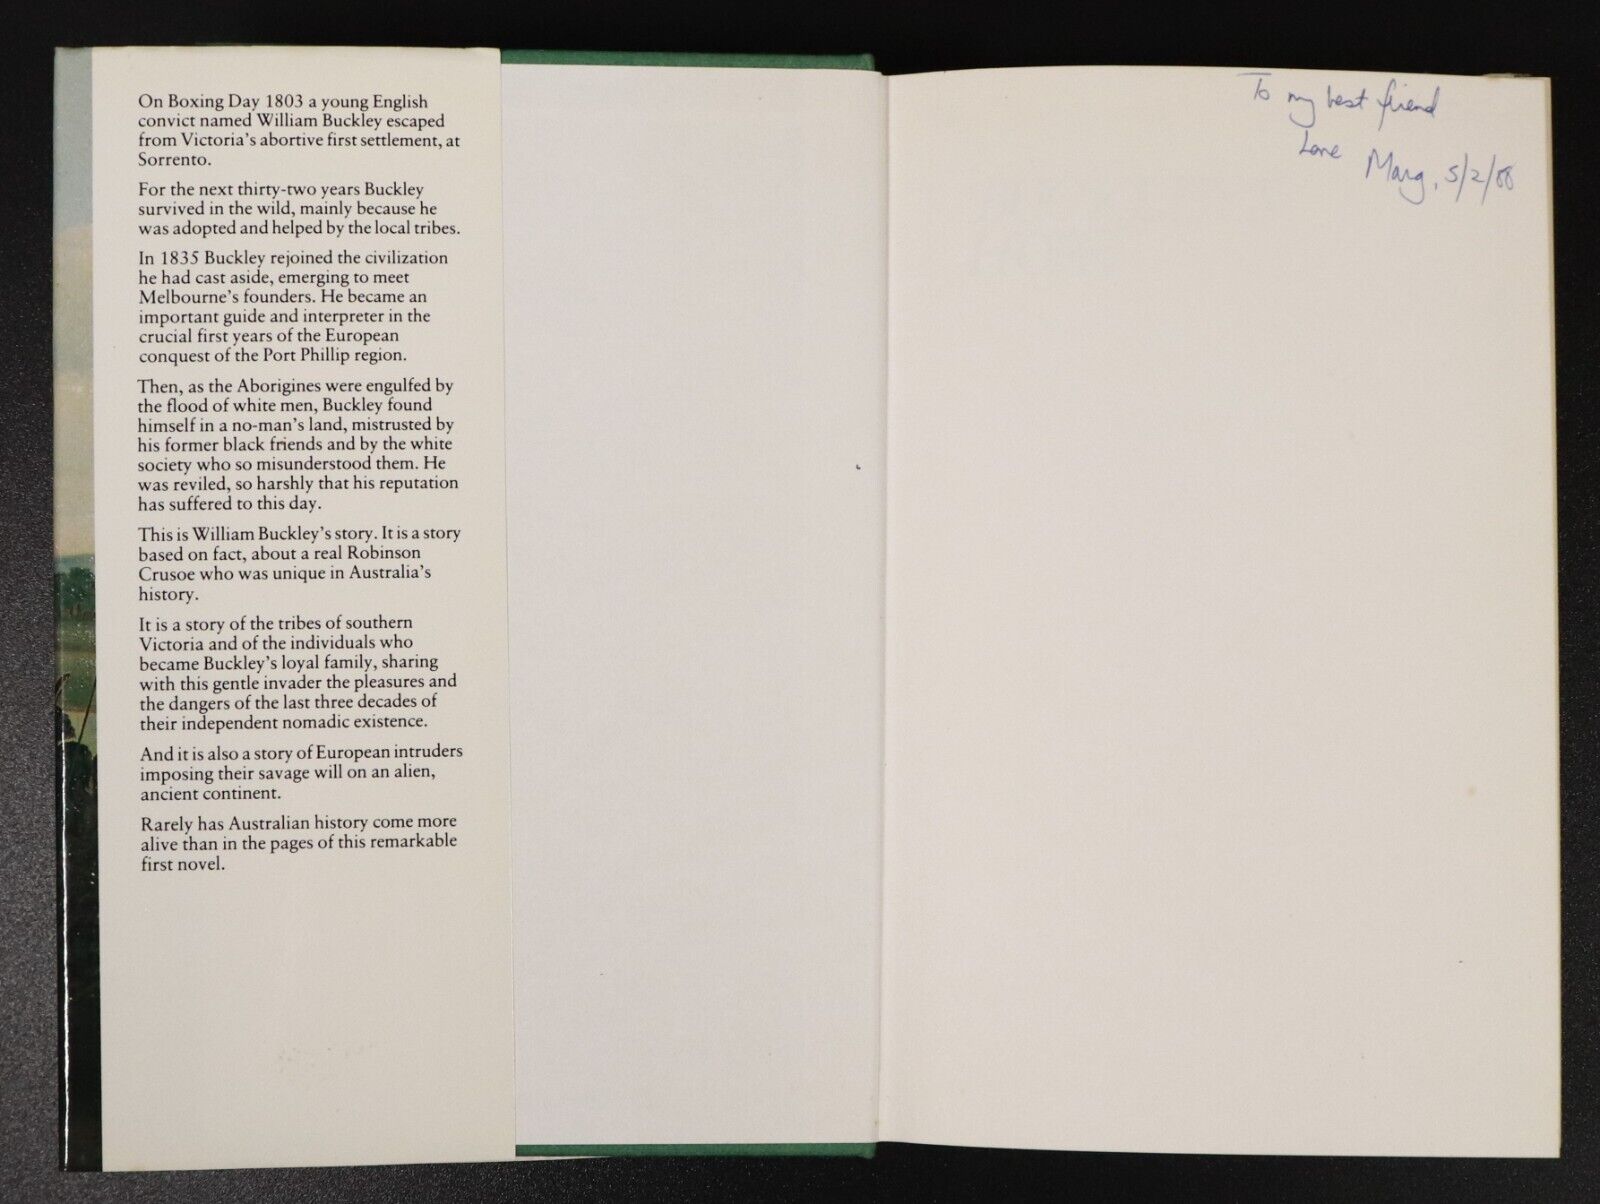 On Boxing Day 1803 a young English
convict named William Buckley escaped
from Victoria's abortive first settlement, at
Sorrento.
For the next thirty-two years Buckley
survived in the wild, mainly because he
was adopted and helped by the local tribes.
In 1835 Buckley rejoined the civilization
he had cast aside, emerging to meet
Melbourne's founders. He became an
important guide and interpreter in the
crucial first years of the European
conquest of the Port Phillip region.
Then, as the Aborigines were engulfed by
the flood of white men, Buckley found
himself in a no-man's land, mistrusted by
his former black friends and by the white
society who so misunderstood them. He
was reviled, so harshly that his reputation
has suffered to this day.
This is William Buckley's story. It is a story
based on fact, about a real Robinson
Crusoe who was unique in Australia's
history.
It is a story of the tribes of southern
Victoria and of the individuals who
became Buckley's loyal family, sharing
with this gentle invader the pleasures and
the dangers of the last three decades of
their independent nomadic existence.
And it is also a story of European intruders
imposing their savage will on an alien,
ancient continent.
Rarely has Australian history come more
alive than in the pages of this remarkable
first novel.
To my best friend
Love Marg, 5/2/88